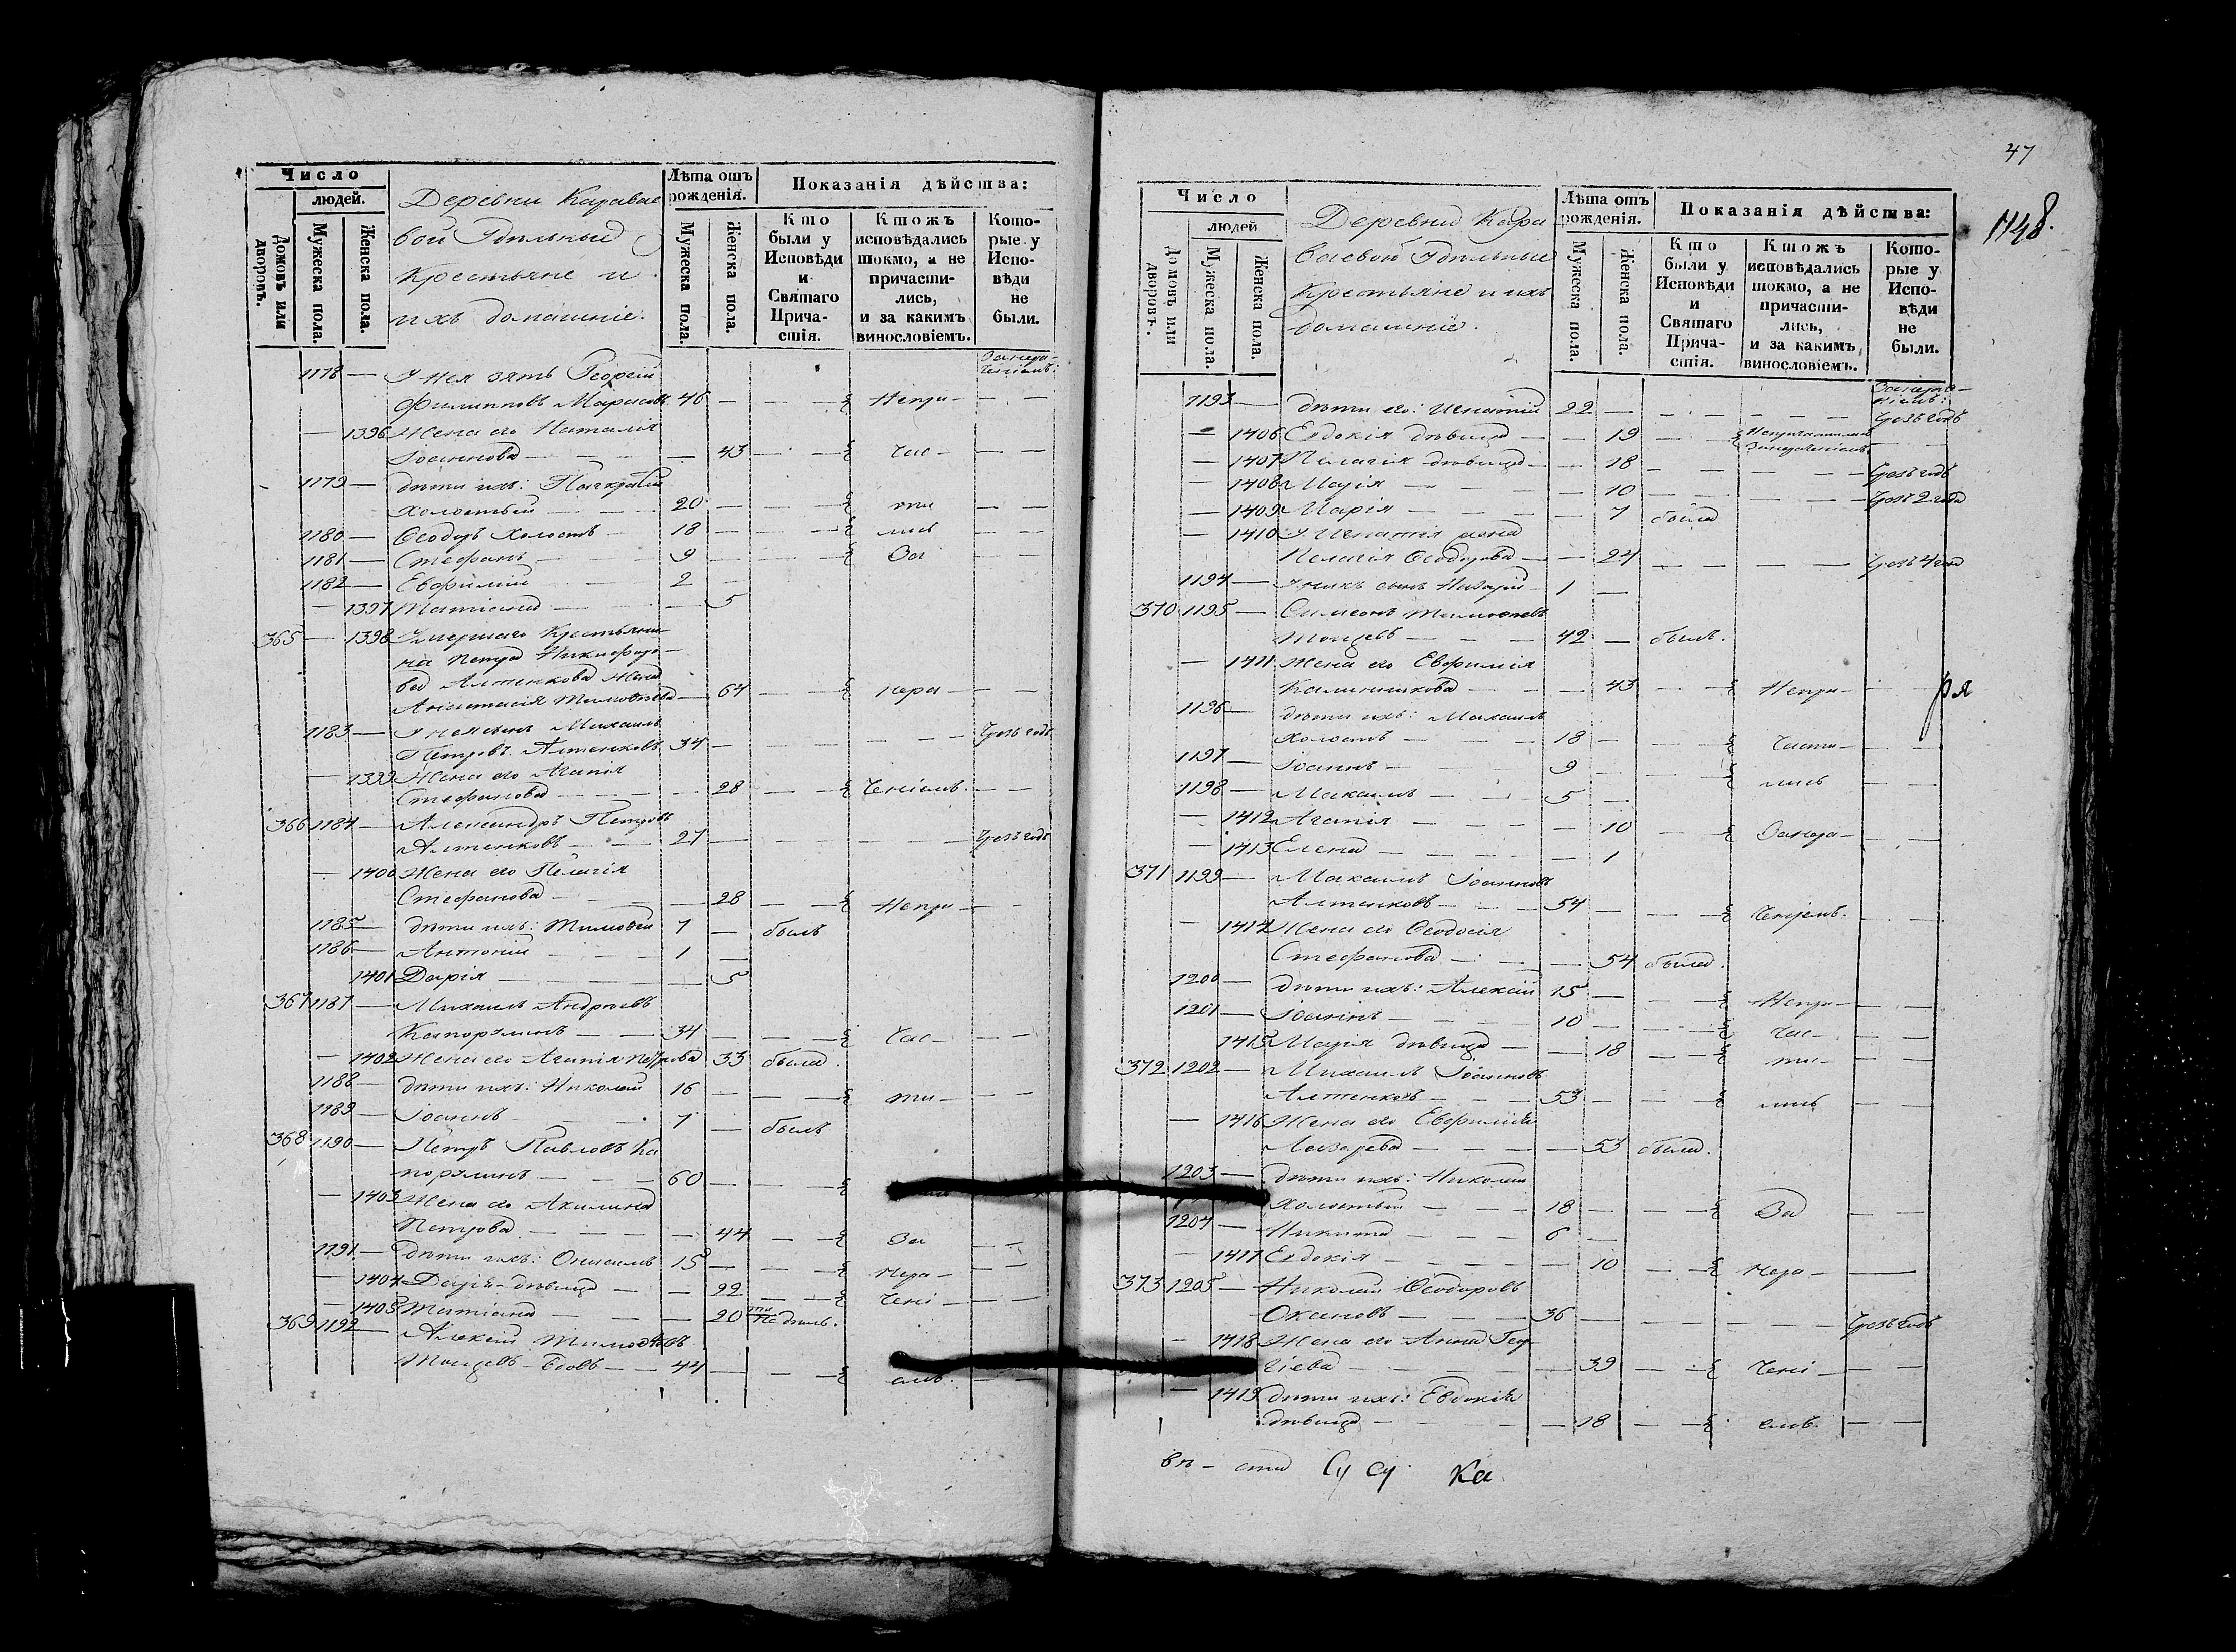 Число
людей.
Домовъ или дворовъ.
Мужеска пола.
Женска пола.
Деревни Каравае
вой Удѣльные
Крестьяне и
ихъ домашніе.
Лѣта отъ рожденія.
Мужеска пола.
Женска пола.
Показанія дѣйства:
Кто были у Исповѣди и Святаго Прича-стія.
Ктожъ исповѣдались токмо, а не причасти-лись, и за какимъ винословіемъ.
Кото-рые у Испо-вѣди не были.
1178 — У нея зять Георгій
Филипповъ 46 — — — Непри — — —
— 1396 Жена его Наталія
Іоаннова — — — 43 — — Час — — —
1179 — дѣти ихъ: Панкратій
холостый — — 20 — — — ти — —
1180 — Ѳеодоръ холостъ — 18 — — — лись — —
1181 — Стефанъ — 9 — — — За — —
1182 — Евфимій — 2 —
— 1397 Татіана — — 5
365 — 1398 Умершаго Крестьяни-
на Петра Никифоро-
ва Алтенкова жена
Анастасія Тимоѳеева — 64 — — нера — — —
1183 — У нея сынъ Михаилъ
Петровъ Алтенковъ 34 — — — — — Чрезъ годъ
— 1399 Жена его Агапія
Стефанова — — — 28 — — ченіемъ. — —
366 1184 — Александръ Петровъ
Алтенковъ — — 27 — — — — — Чрезъ годъ
— 1400 Жена его Пелагія
Стефанова — — — 28 — — Непри — — —
1185 — дѣти ихъ: Тимоѳей 7 — былъ
1186 — Антоній — — 1 —
1401 Дарія — — — 5
367 1187 — Михаилъ Андреевъ
Капорулинъ — — 34 — — — Час — — —
— 1402 Жена его Агапія Петрова 33 была.
1188 — дѣти ихъ: Николай 16 — — — ти — — —
1189 — Іоаннъ — — 7 — былъ
368 1190 — Петръ Павловъ Ка
порулинъ — — — 60 — — —
— 1403 Жена его Акилина
Петрова — — — — 44 — — За — —
1191 — дѣти ихъ: Онисимъ 15 — — — нера — — —
— 1404 Дарія — дѣвица — — 22 — — чені — — —
— 1405 Татіана — — — 20
369 1192 — Алексій Тимоѳеевъ
вдовъ — 44 — — — емъ. — —
47
1148.
Число
людей
Домовъ или дворовъ.
Мужеска пола.
Женска пола.
Деревни Кара
ваевой Удѣльные
Крестьяне и ихъ
домашніе.
Лѣта отъ рожденія.
Мужеска пола.
Женска пола.
Показанія дѣйства:
Кто были у Исповѣди и Святаго Прича-стія.
Ктожъ исповѣдались токмо, а не причасти-лись, и за какимъ винословіемъ.
Кото-рые у Испо-вѣди не были.
1193 — дѣти его: Игнатій 22 — — — — — — Чрезъ годъ
— 1406 Евдокія дѣвица — — 19 — —
— 1407 Пелагія дѣвица — — 18 — — — — Чрезъ годъ
— 1408 Марія — — — 10 — — — — Чрезъ 2 года
— 1409 Марія — — — 7 была
— 1410 У Игнатія жена
Пелагія Ѳеодорова — — 24 — — — — Чрезъ 4 года
1194 — У нихъ сынъ Назарій — 1 —
370 1195 — Симеонъ Тимоѳеевъ
— — — 42 — былъ.
— 1411 Жена его Евфимія
Калинникова — — — 43 — — Непри — — —
ря
1196 — дѣти ихъ: Михаилъ
холостъ — — — 18 — — — части — — —
1197 — Іоаннъ — — — 9 — — — лись — —
1198 — Михаилъ — — 5 —
— 1412 Агапія — — — — 10 — — Занера — — —
— 1413 Елена — — — — 1
371 1199 — Михаилъ Іоанновъ
Алтенковъ — — — 54 — — — ченіемъ. — —
— 1414 Жена его Ѳеодосія
Стефанова — — — 54 была.
1200 — дѣти ихъ: Алексій 15 — — — Непри — — —
1201 — Іоаннъ — — — 10 — — — Час — — —
1415 Марія дѣвица — — 18 — — ти — — —
372 1202 — Михаилъ Іоанновъ
Алтенковъ — — — 53 — — — лись — —
— 1416 Жена его Евфимія
Лазарева — — — — 53 была.
1203 — дѣти ихъ: Николай
холостый — — — 18 — — — За — —
1204 — Никита — — — 6 —
— 1417 Евдокія — — — — 10 — — нера — ——
373 1205 — Николай Ѳеодоровъ
Окановъ — — — 36 — — — — — Чрезъ годъ
— 1418 Жена его Анна Геор
гіева — — — — 39 — — чені — ——
— 1419 дѣти ихъ: Евдокія
дѣвица — — — — 18 — — емъ. — —
Ка